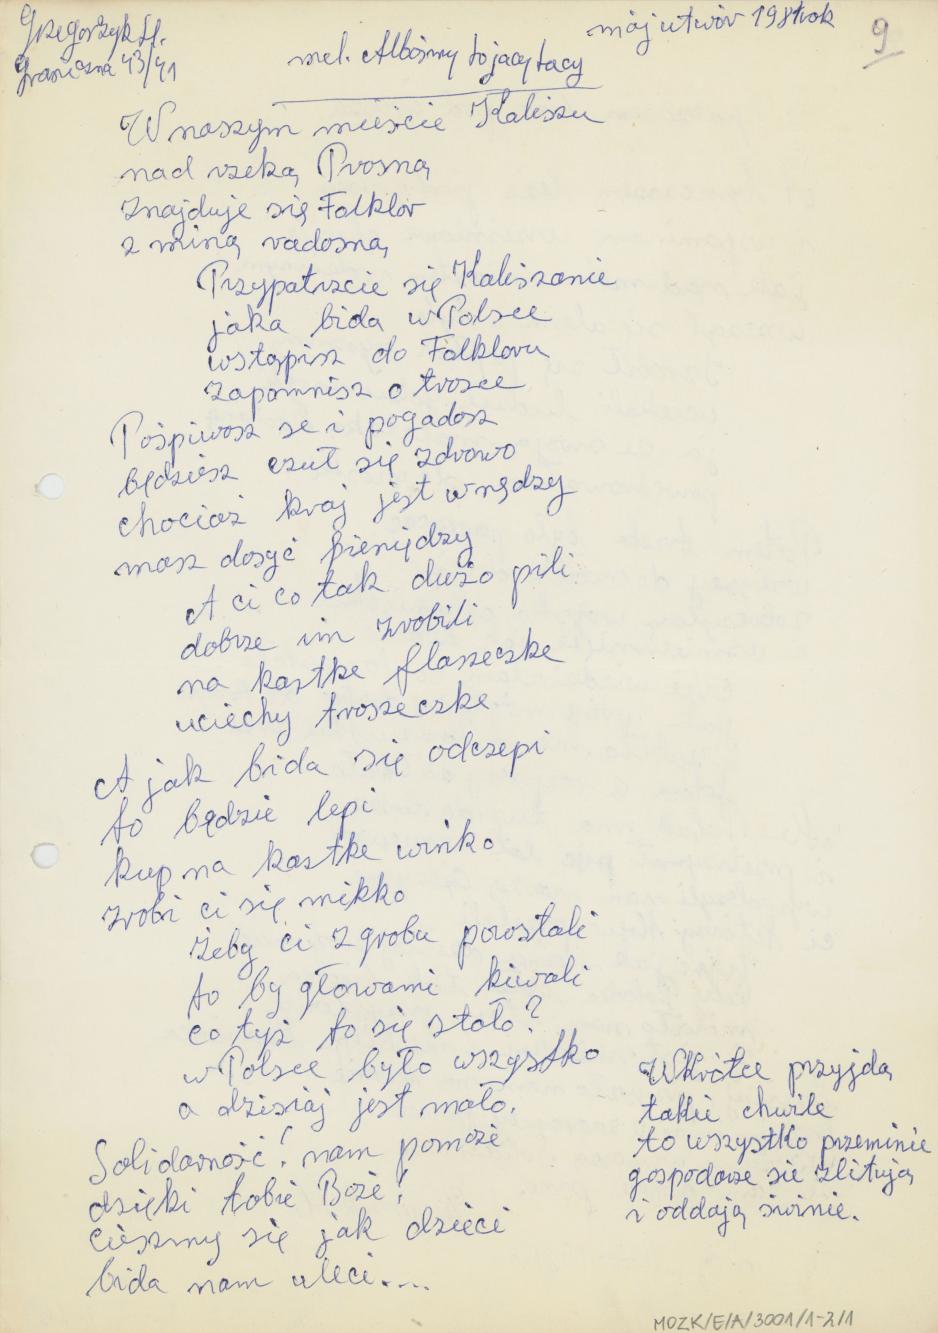 Grzegorzyk H.
Graniczna 43/41
mój utwór 1981 rok
9
mel. Albośmy to jacy tacy
W naszym mieście Kaliszu
nad rzeką Prosną
znajduje się Folklor
z miną radosną
Przypatrzcie się Kaliszanie
jaka bida w Polsce
wstąpisz do Folkloru
zapomnisz o trosce
Pośpiwosz se i pogadosz
będziesz czuł się zdrowo
chociaż kraj jest w nędzy
masz dosyć pieniędzy
A ci co tak dużo pili
dobrze im zrobili
na kartke flaszeczke
uciechy troszeczke
A jak bida się odczepi
to będzie lepi
kup na kartke winko
zrobi ci się mikko
żeby ci z grobu powstali
to by głowami kiwali
co tyż to się stało?
w Polsce było wszystko
a dzisiaj jest mało.
Solidarność! nam pomoże
dzięki tobie Boże!
cieszmy się jak dzieci
bida nam uleci....
Wkrótce przyjdą
takie chwile
to wszystko przeminie
gospodarze sie zlitują
i oddają świnie.
MOZK/E/A/3001/1-2/1